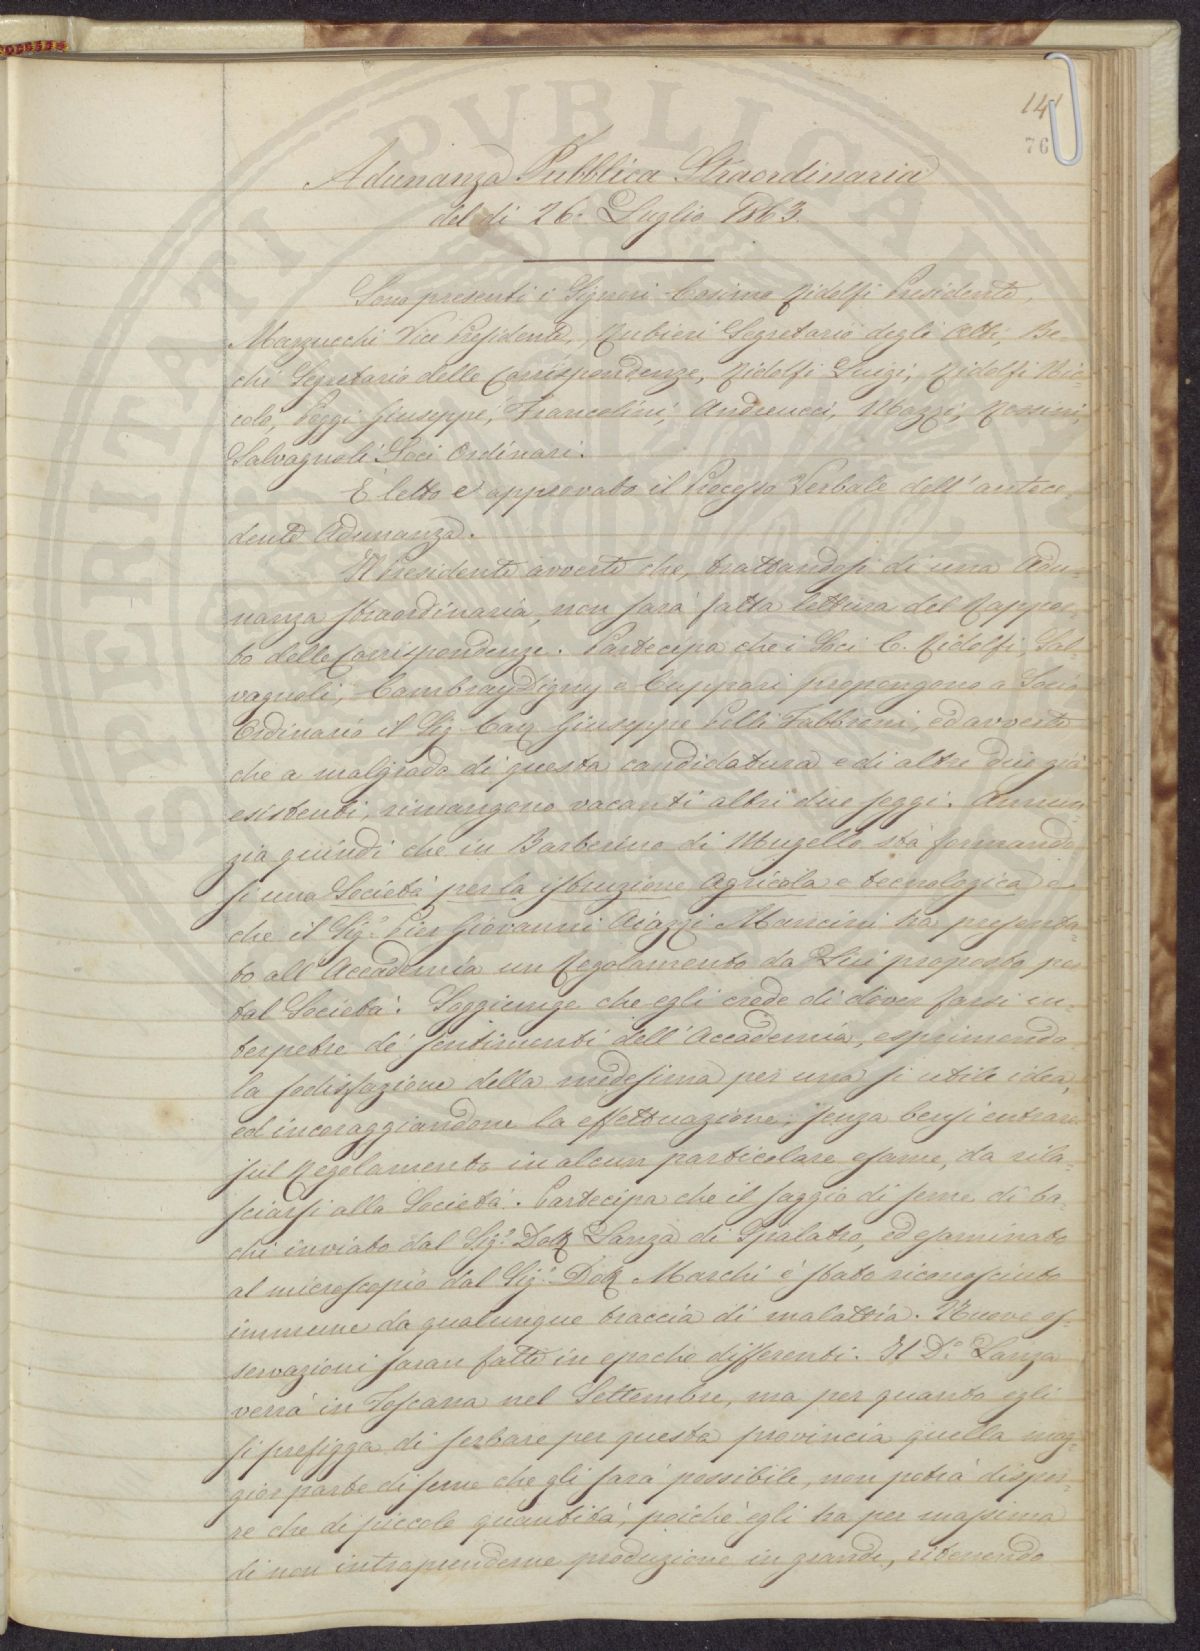 141
76
Adunanza Pubblica Straordinaria
del dì 26. Luglio 1863.
Sono presenti i Signori Cosimo Ridolfi Presidente,
Marzucchi Vice Presidente, Rubieri Segretario degli Atti, Be-
chi Segretario delle Corrispondenze, Ridolfi Luigi, Ridolfi Nic-
colò, Poggi Giuseppe, Francolini, Andreucci, Mazzi, Rossini,
Salvagnoli Soci Ordinari.
È letto e approvato il Processo Verbale dell'antece-
dente Adunanza.
Il Presidente avverte che, trattandosi di una Adu-
nanza straordinaria, non sarà fatta lettura del Rappor-
to delle Corrispondenze. Partecipa che i Soci C. Ridolfi, Sal-
vagnoli, Cambray Digny e Cuppari propongono a Socio
Ordinario il Sig. Cav. Giuseppe Pelli Fabbroni, ed avverte
che a malgrado di questa candidatura e di altre due già
esistenti, rimangono vacanti altri due seggi. Annun-
zia quindi che in Barberino di Mugello sta formando
si una Società per la istruzione Agricola e tecnologica e
che il Sig.r Pier Giovanni Aiazzi Mancini ha presenta-
to all'Accademia un Regolamento da Lui proposto per
tal Società. Soggiunge che egli crede di dover farsi in-
terpetre de' sentimenti dell'Accademia, esprimendo
la sodisfazione della medesima per una sì utile idea,
ed incoraggiandone la effettuazione; senza bensì entrare
sul Regolamento in alcun particolare esame, da rila-
sciarsi alla Società. Partecipa che il saggio di seme di ba-
chi inviato dal Sig.r Dott. Lanza di Spalatro, ed esaminato
al microscopio dal Sig.r Dott. Marchi è stato riconosciuto
immune da qualunque traccia di malattia. Nuove os-
servazioni saran fatte in epoche differenti. Il D.r Lanza
verrà in Toscana nel Settembre, ma per quanto egli
si prefigga di serbare per questa provincia quella mag-
gior parte di seme che gli sarà possibile, non potrà dispor-
re che di piccole quantità, poichè egli ha per massima
di non intraprenderne produzione in grande, ritenendo